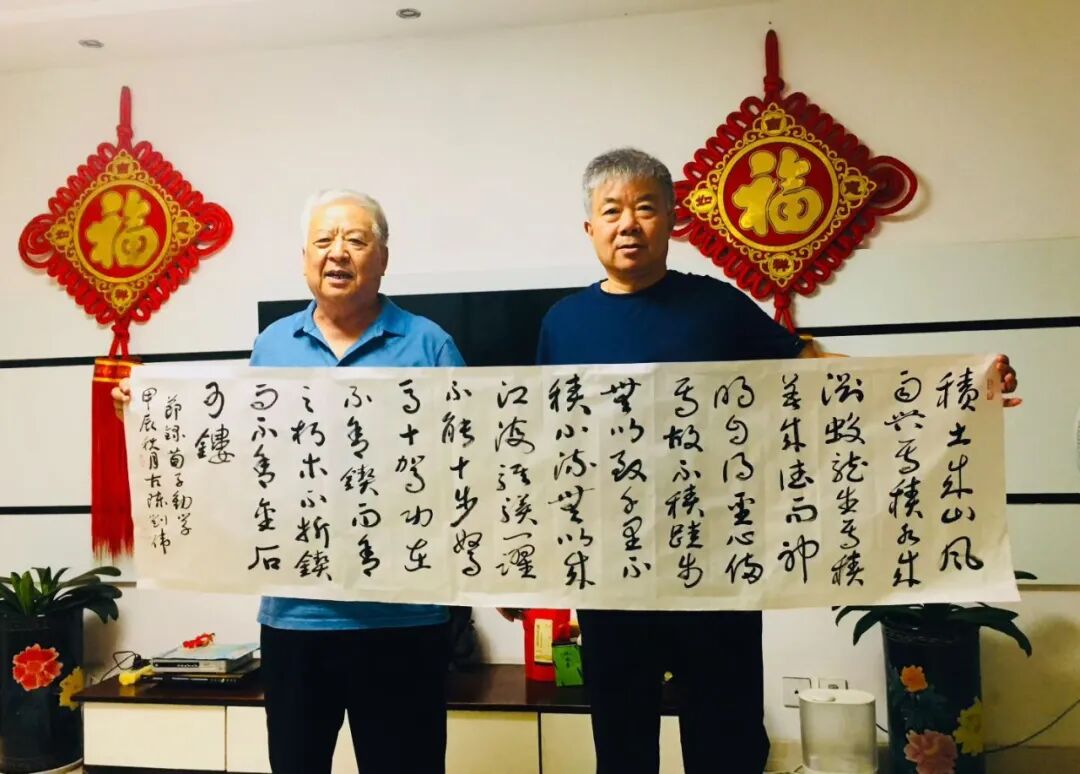 福
福
積土成山風
雨興焉積水成
淵蛟龍生焉積
善成德而神
明自得聖心備
焉故不積蹞步
無以致千里不
積小流無以成
江海騏驥一躍
不能十步駑
馬十駕功在
不舍鍥而舍
之朽木不折鍥
而不舍金石
可鏤
節録荀子勸學
甲辰秋月古陳劉偉